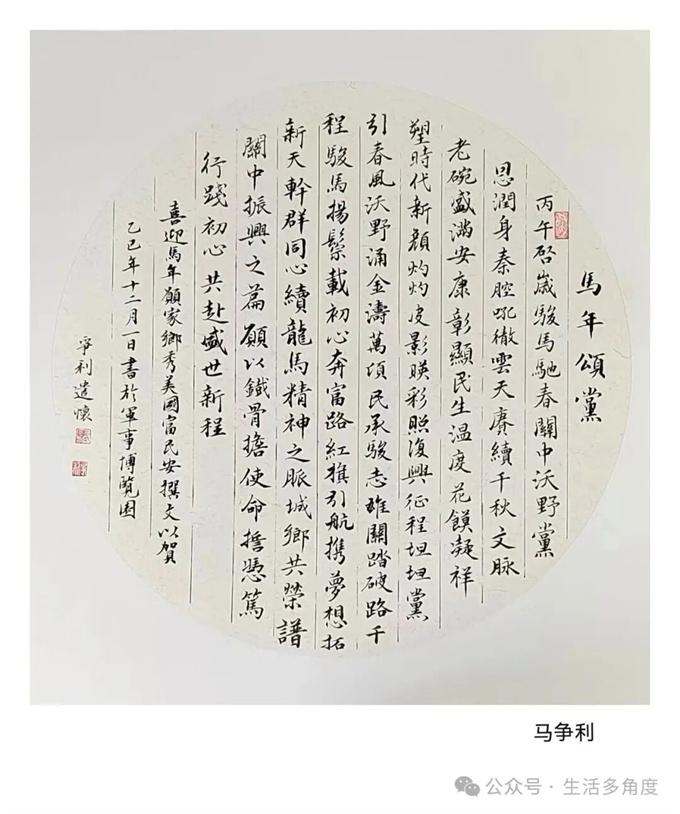 馬年頌黨
丙午啓歲駿馬馳春關中沃野黨
恩潤身秦腔吼徹雲天賡續千秋文脉
老碗盛滿安康彰顯民生温度花饃凝祥
塑時代新顔灼灼皮影映彩照復興征程坦坦黨
引春風沃野涌金濤萬項民承駿志雄關踏破路千
程駿馬揚鬃載初心奔富路紅旗引航携夢想拓
新天幹群同心續龍馬精神之脈城鄉共榮譜
關中振興之篇願以鐵骨擔使命誓憑篤
行踐初心共赴盛世新程
喜迎馬年願家鄉秀美國富民安撰文以賀
乙巳年十二月一日書於軍事博覽園
爭利遣懷
马争利
公众号·生活多角度